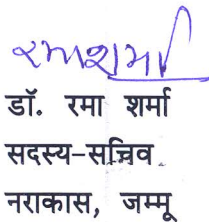 रमा शर्मा
डॉ. रमा शर्मा
सदस्य-सचिव
नराकास, जम्मू